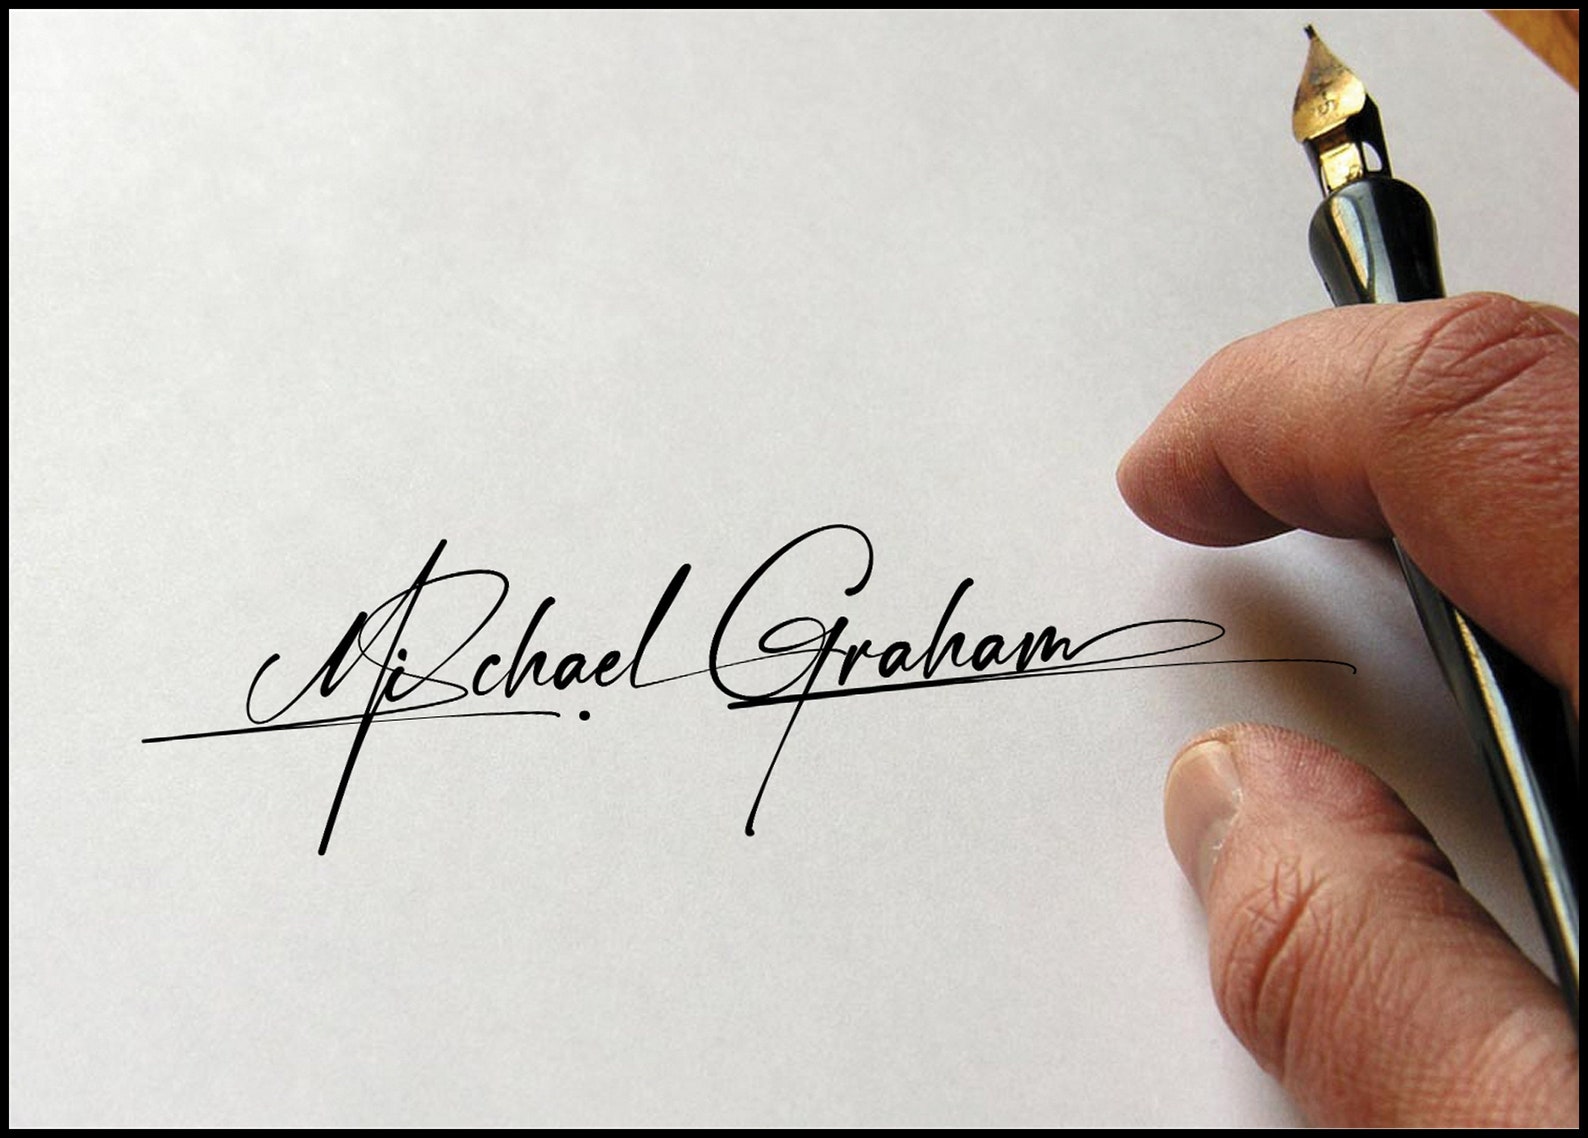 Michael Graham